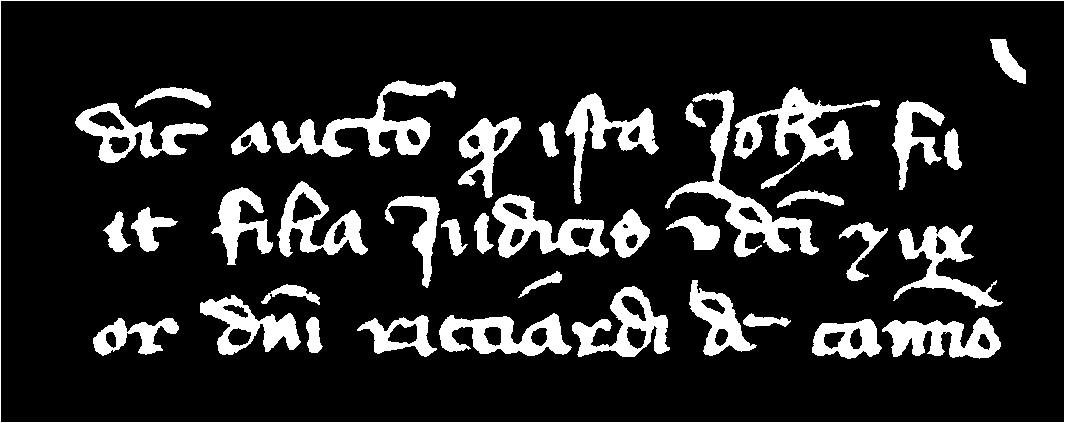 dic̄ auctō ꝙ ista Joħa fu
it filia Judicis v̄ dc̄i ⁊ ux
or dn̄i ricciardi de camīo